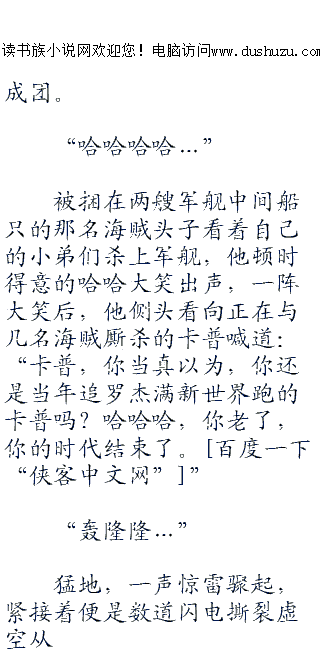 读书族小说网欢迎您！电脑访问www.dushuzu.com
成团。
“哈哈哈哈…”
被捆在两艘军舰中间船
只的那名海贼头子看着自己
的小弟们杀上军舰，他顿时
得意的哈哈大笑出声，一阵
大笑后，他侧头看向正在与
几名海贼厮杀的卡普喊道：
“卡普，你当真以为，你还
是当年追罗杰满新世界跑的
卡普吗？哈哈哈，你老了，
你的时代结束了。[百度一下
“侠客中文网”]”
“轰隆隆…”
猛地，一声惊雷骤起，
紧接着便是数道闪电撕裂虚
空从